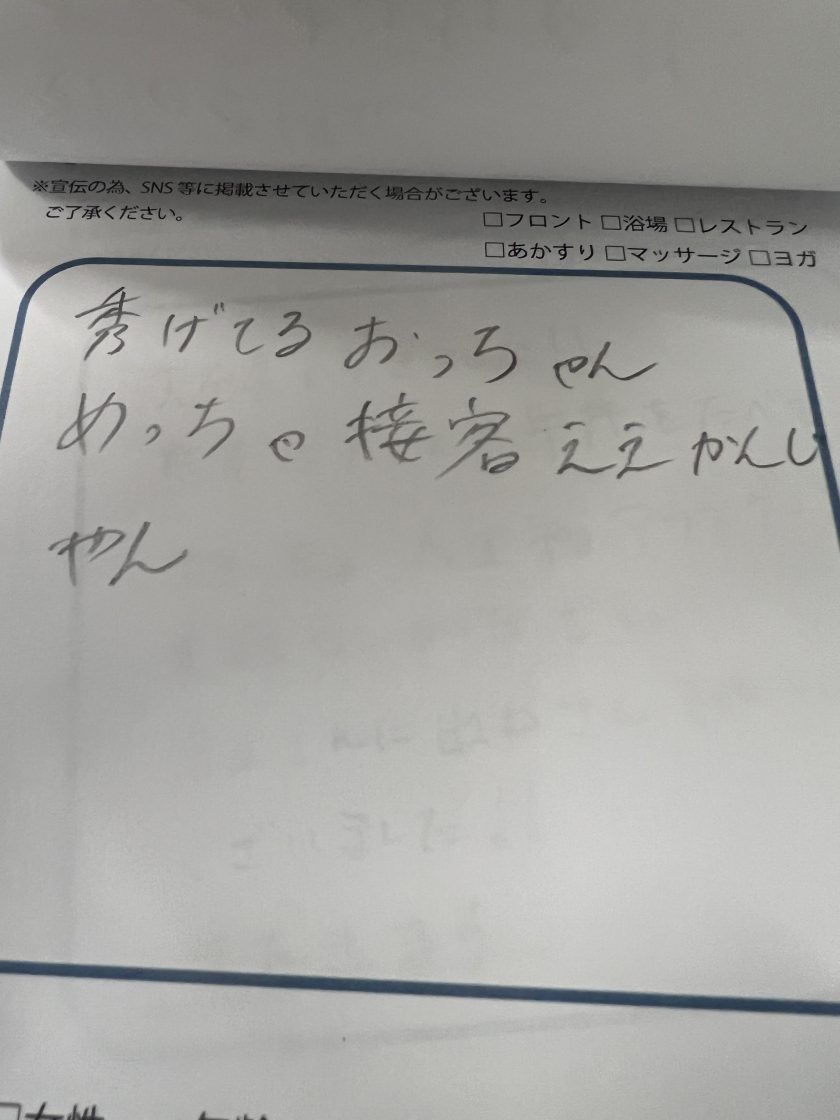 ※宣伝の為、SNS等に掲載させていただく場合がございます。
ご了承ください。
□フロント □浴場 □レストラン
□あかすり □マッサージ □ヨガ
秀げてるおっちゃん
めっちゃ接客ええかんじ
やん